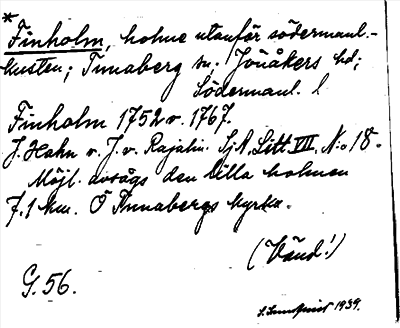 *
Finholm, holme utanför södermanl.-
kusten; Tunaberg sn; Jönåkers hd;
Södermanl. l
Finholm 1752 o. 1767.
J. Hahn o. J. v. Rajalin. SjA. Litt. VII, N:o 18.
Möjl. avsågs den lilla holmen
7,1 km. Ö Tunabergs kyrka.
(Vänd!)
G. 56.
1939.